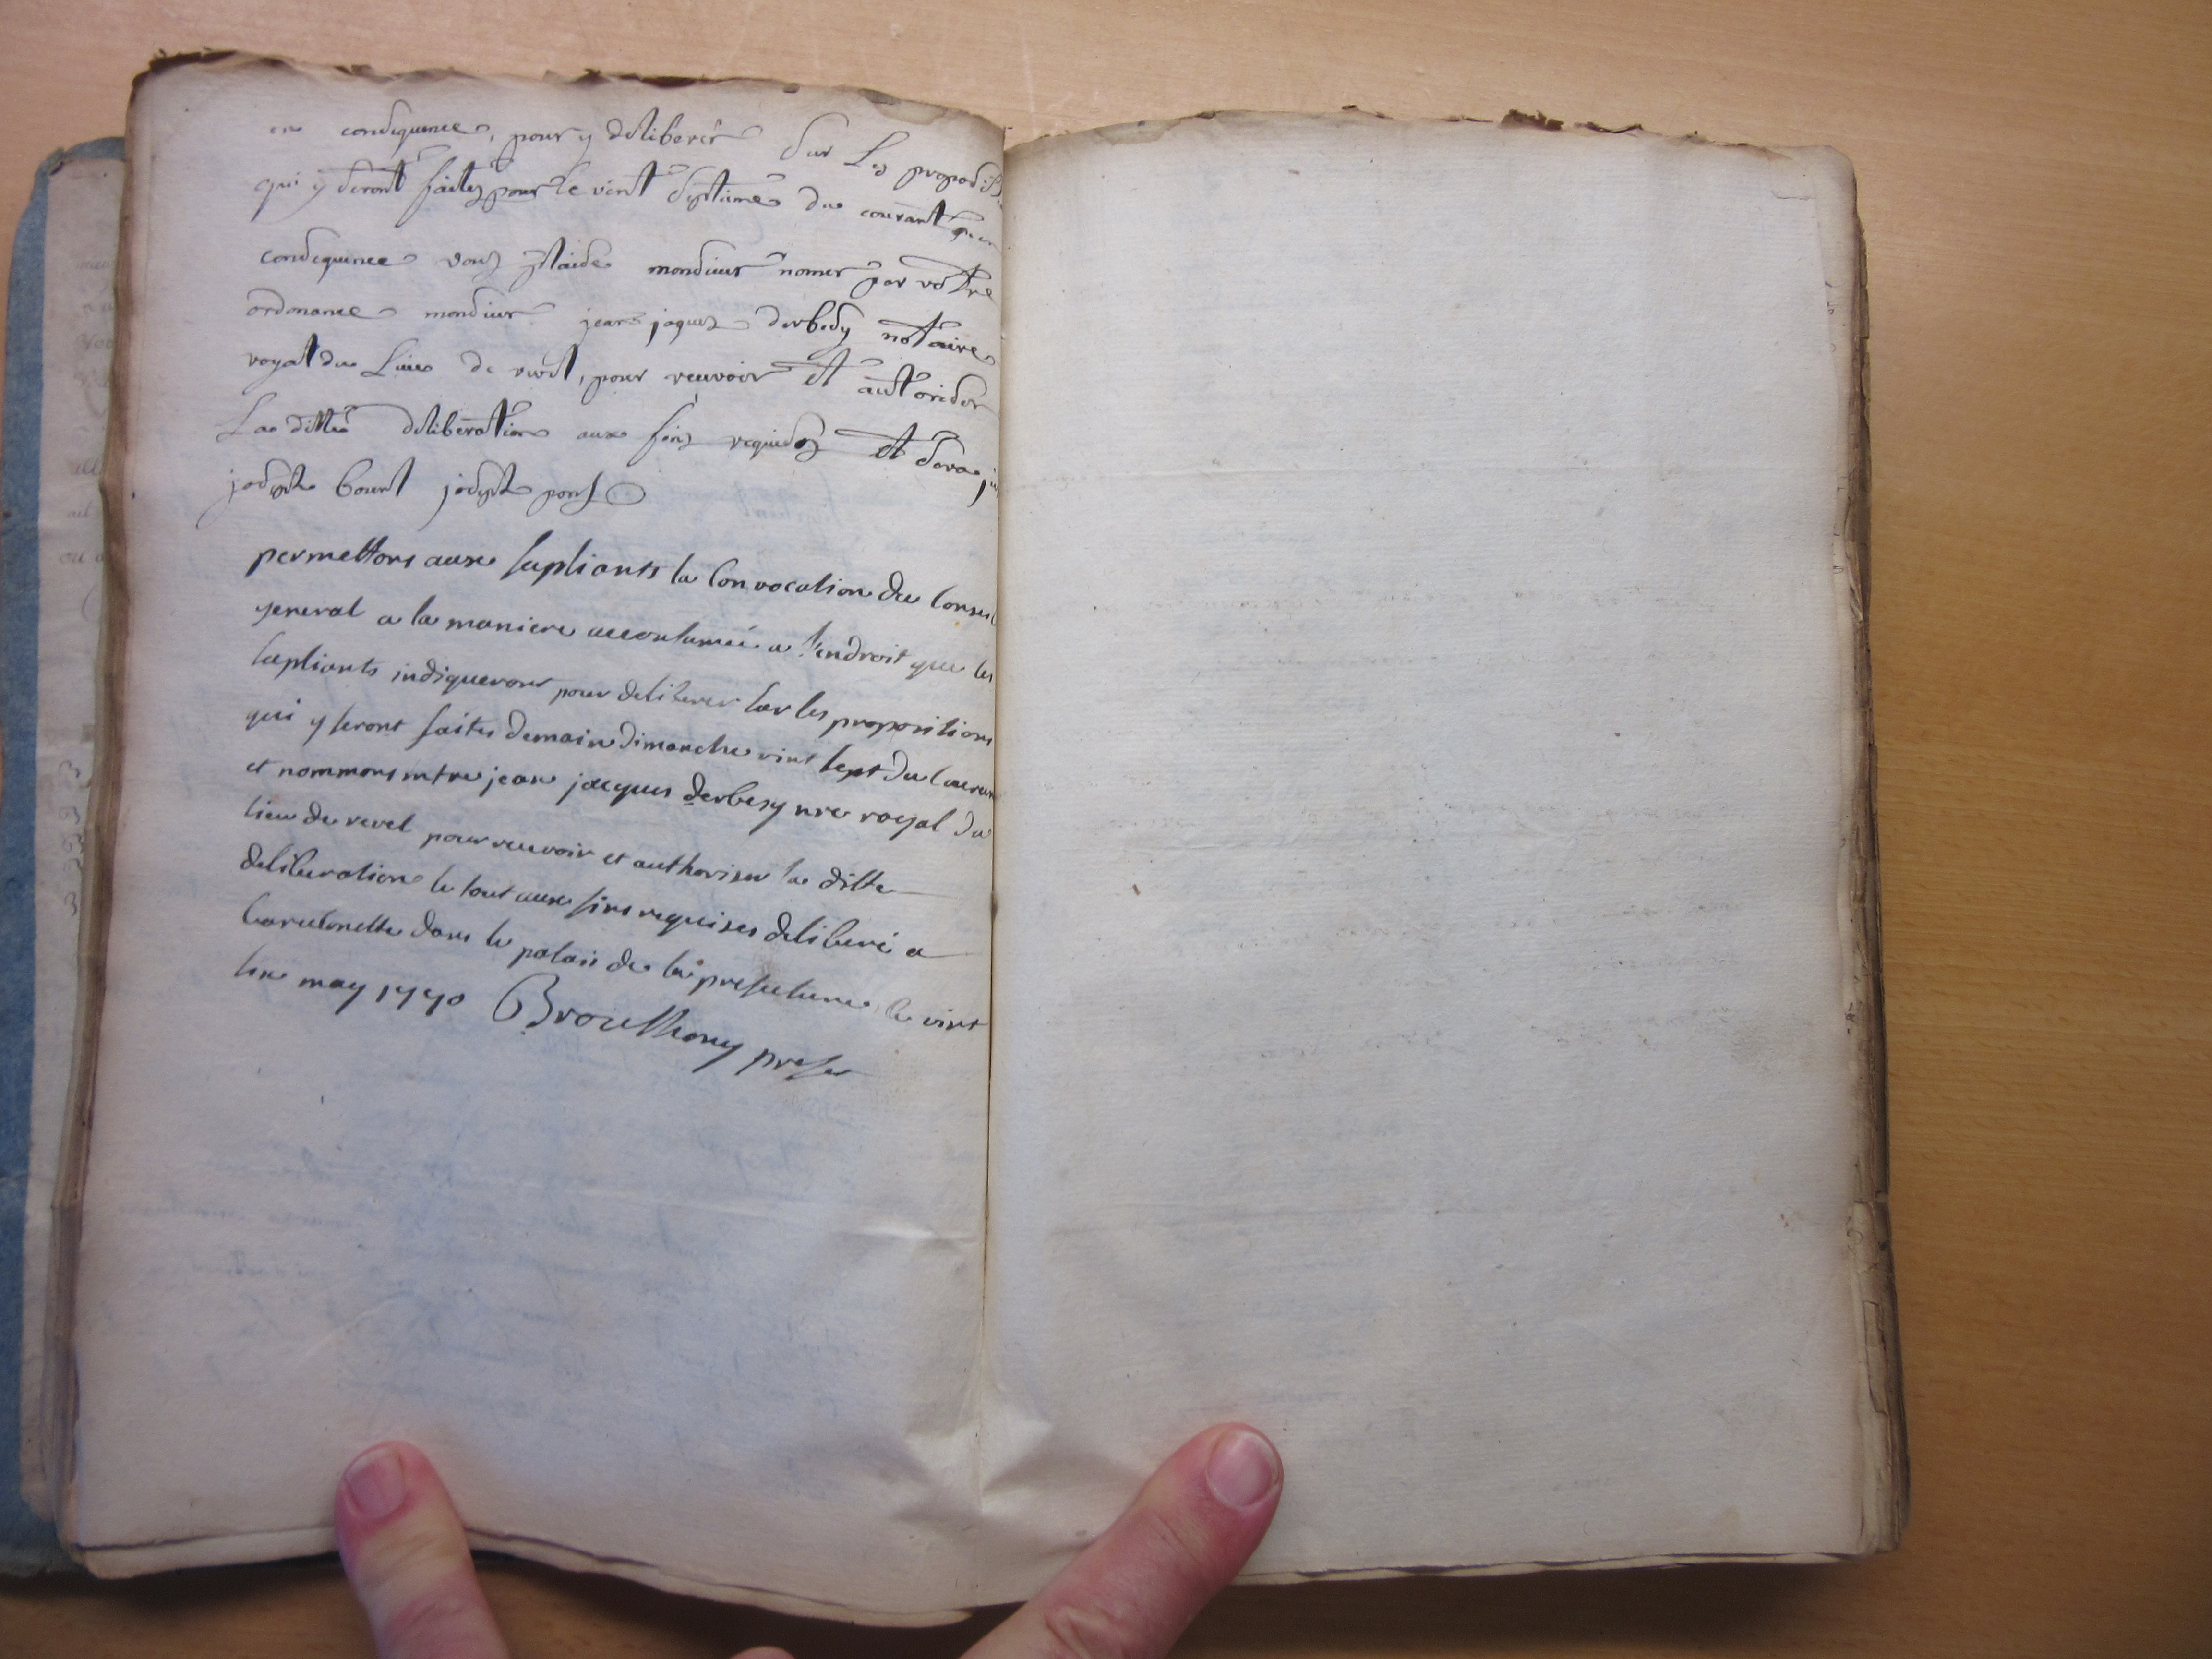 en consequence, pour y deliberer sur les proposi
qui y seront faites pour le vint septieme du courant
consequence vous plaise monsieur nomer par votre
ordonance monsieur jean jaques derbesy notaire
royal du Lieu de revel, pour recevoir et autoriser
La ditte deliberation aux fins requises et sera
joseph bourl joseph pons
permettons aux supliants la Convocation du Conseil
general a la maniere accoutumée a l'endroit que les
supliants indiqueront pour deliberer sur les propositions
qui y seront faites demain dimanche vint sept du Couran
et nommons mtre jean jacques derbesy nre royal du
lieu de revel pour recevoir et authoriser la ditte
deliberation le tout aux fins requises deliberé a
barcelonette dans le palais de la prefecture le vint
six may 1770 Brouthony prefe